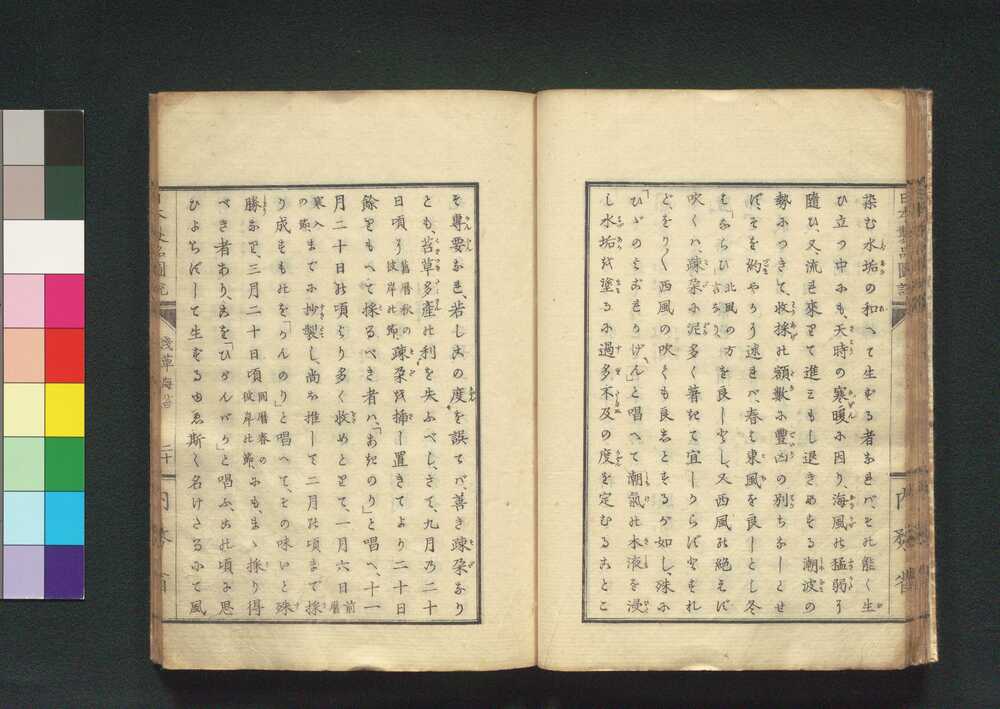 染む水垢の和へて生ずる者なれバ、その能く生
ひ立つ中にも、天時の寒暖に因り、海風の猛弱に
隨ひ、又、流れ來りて進ミもし退きもする潮波の
勢につきて、收採の額數に豐凶の別ちなしとせ
ず、そを約やかに述れバ、春は東風を良しとし冬
は「ならひ」北風の方言なりを良しとし、又西風の絶えず
吹くハ、疎朶に泥多く著きて宜しからず、それ
西風の吹くも良しとするが如し、殊に
「ひゞのよごれかげん」と唱へて潮氣の水液を浸
し水垢を塗るに過多不及の度を定むることこ
そ專要なれ、若し其の度を誤てバ、善き疎朶なり
とも、苔草多産の利を失ふべし、さて、九月乃二十
日頃より舊曆秋の彼岸の節疎朶を插し置きてより二十日
餘りもへて採るべき者ハ、「あきのり」と唱へ、十一
月二十日の頃より多く收めとりて、一月六日前曆
寒入の頃までに抄製し、尚ほ推して二月の頃まで採
り成すものを「かんのり」と唱へて、その味いと殊
勝なり、三月二十日頃同曆春の彼岸の節にも、まゝ採り得
べき者あり、是を「ひがんバり」と唱ふ、此の頃に思
ひよらずして生ずるゆゑ斯く名けたるにて風
日本製品圖説
淺草海苔
二十
内務省